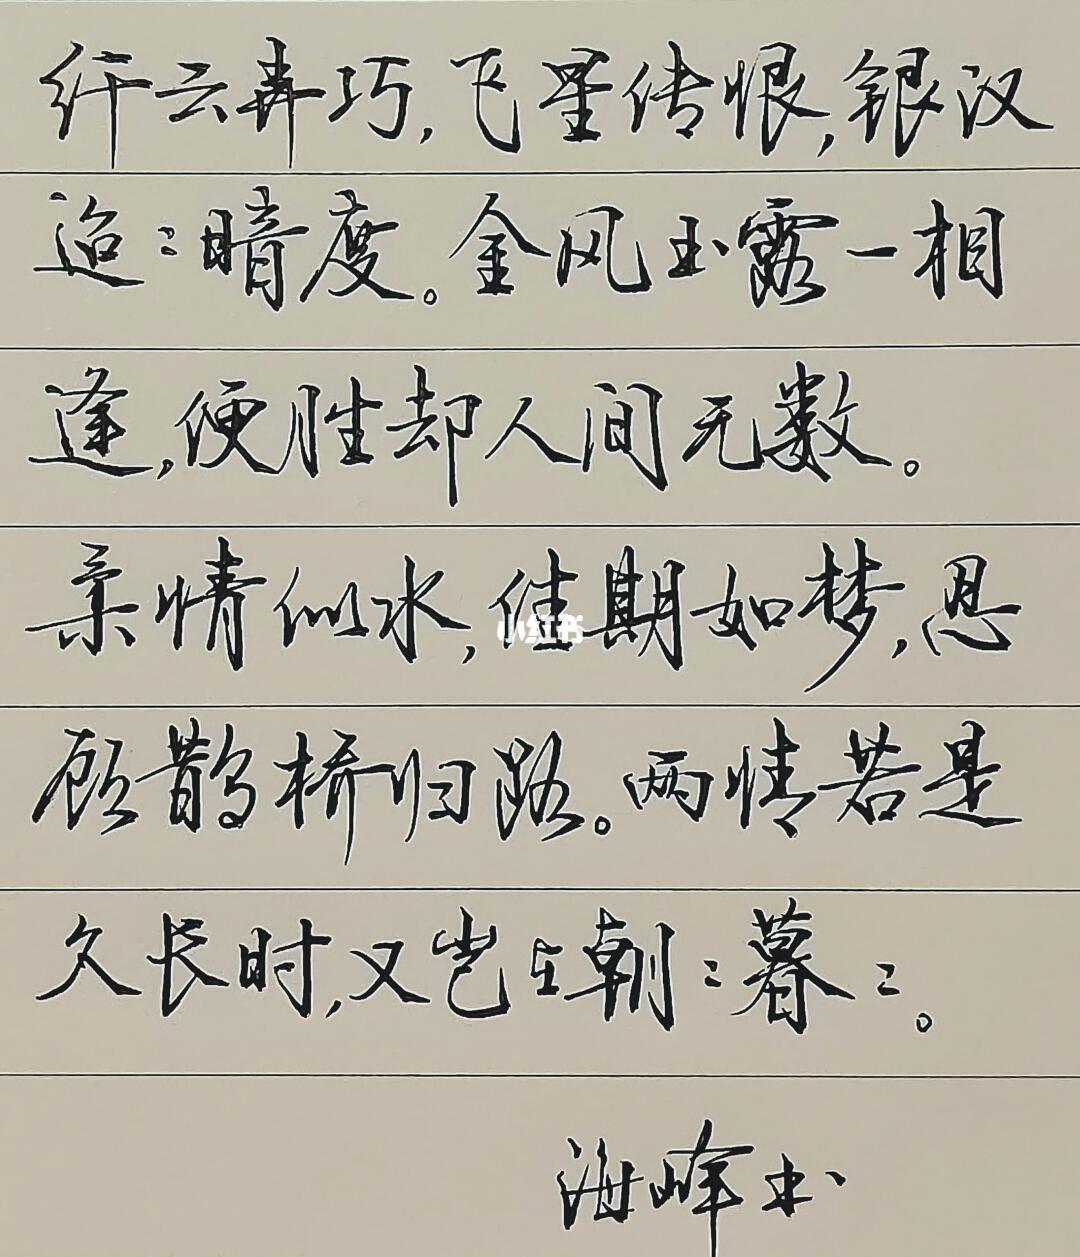 纤云弄巧，飞星传恨，银汉
迢〻暗度。金风玉露一相
逢，便胜却人间无数。
柔情似水，佳期如梦，忍
小红书
顾鹊桥归路。两情若是
久长时，又岂在朝〻暮〻。
海峰书